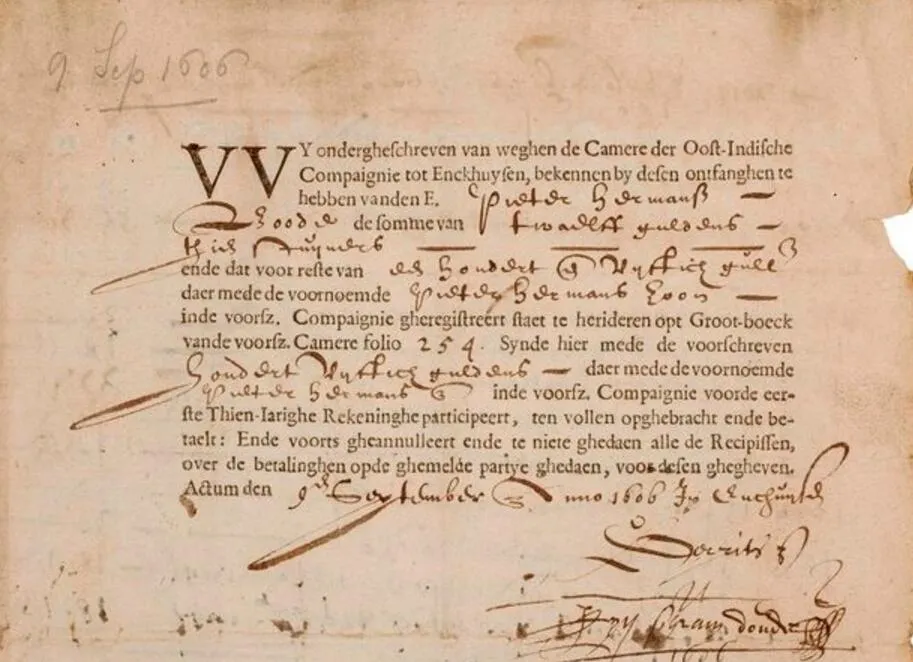 9 Sep 1606
VVY onderghescHreven van weghen de Camere der Oost-Indische
Compaignie tot Enckhuysen, bekennen by desen ontfanghen te
hebben vanden E. Pieter Hermansz
de somme van twaelff guldens
ende dat voor reste van hondert gull
daer mede de voornoemde Pieter Hermans zoon
inde voorsz. Compaignie gheregistreert staet te herideren opt Groot-boeck
vande voorsz. Camere folio 254. Synde hier mede de voorschreven
hondert guldens daer mede de voornoemde
Pieter Hermans inde voorsz. Compaignie voorde eer-
ste Thien-Iarighe Rekeninghe participeert, ten vollen opghebracht ende be-
taelt: Ende voorts gheannulleert ende te niete ghedaen alle de Recipissen,
over de betalinghen opde ghemelde partye ghedaen, voor desen ghegheven.
Actum den 9 September Anno 1606